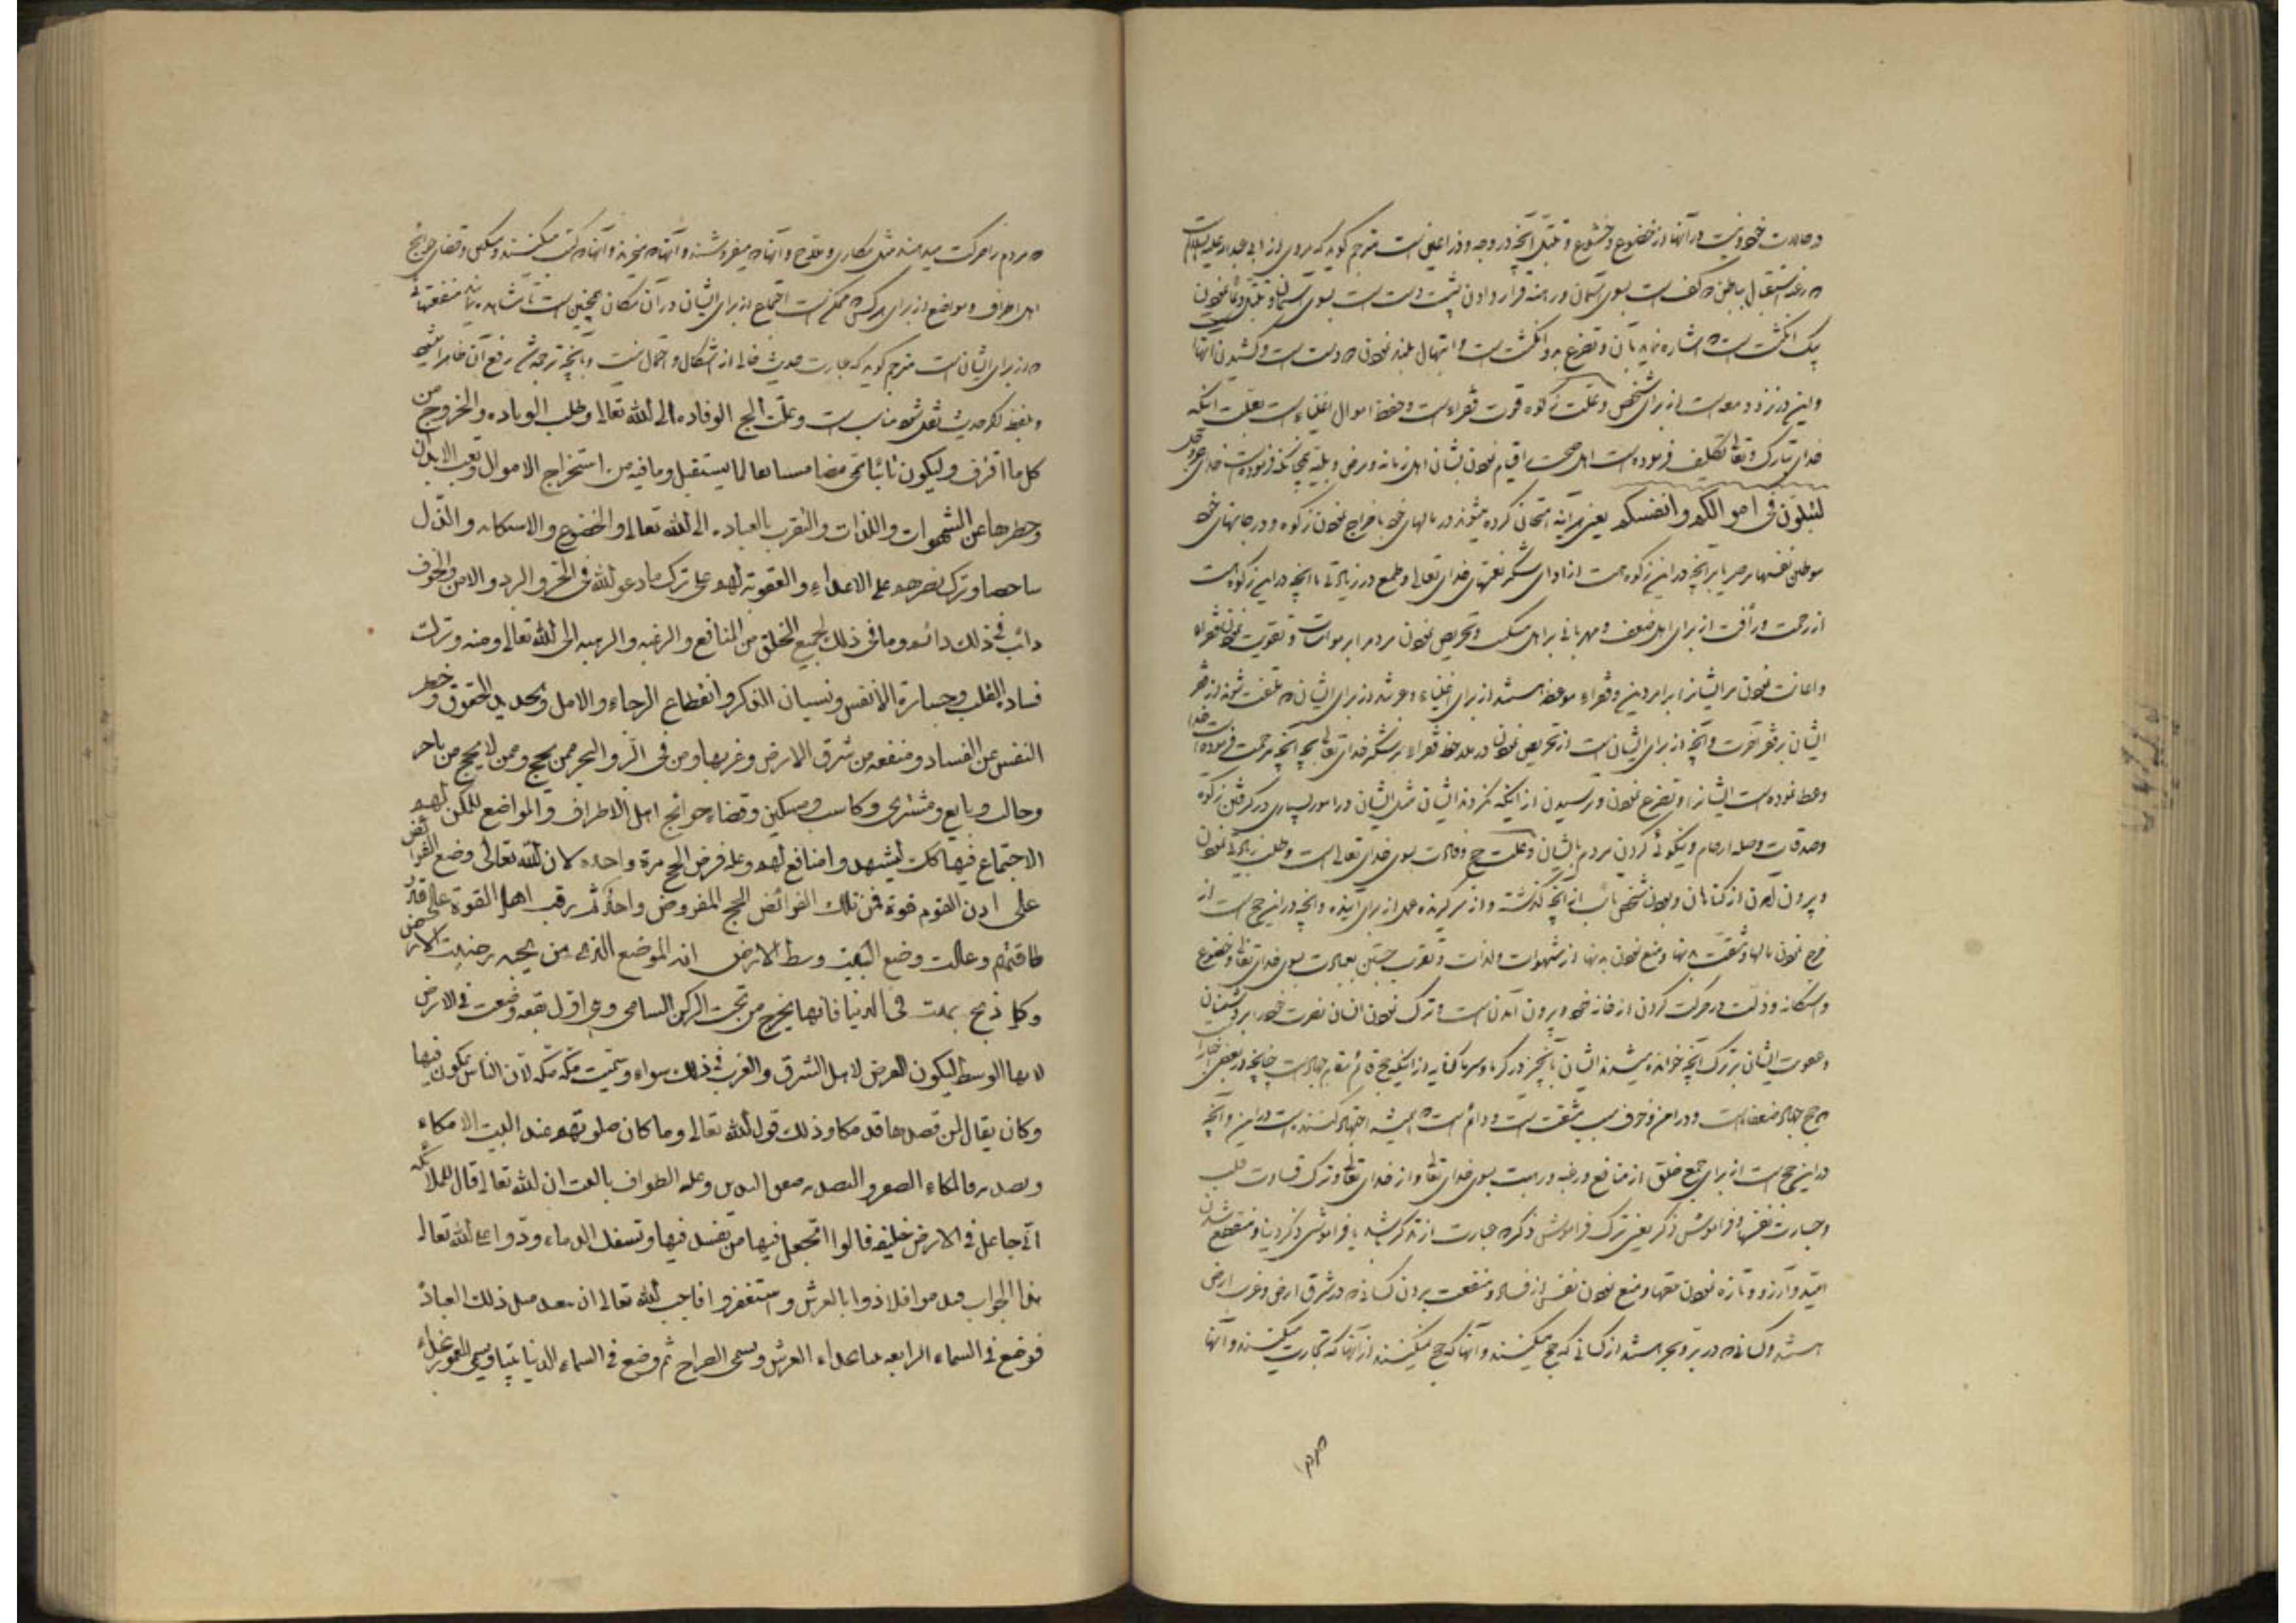 در حالات خود نیست در آنها از خضوع و خشوع و تبتل آنچه در وجه و ذراعین است مترجم گوید که مروی از ابی عبدالله علیه السلام است
رغبه استقبال بباطن کف است بسوی آسمان و رهبه قرار دادن پشت دست است بسوی آسمان و تبتل و دعا نمودن
یک انگشت است اشاره نماید بآن و تضرع بدو انگشت است و ابتهال بلند نمودن دو دست است و کشیدن آنها
و این در نزد دمعه است از برای شخص و علت زکوة قوت فقراء است و حفظ اموال اغنیاء است بعلت آنکه
خدای تبارک و تعالی تکلیف فرموده است اهل صحت را قیام نمودن بشان اهل زمانه و مرض و بلیه همچنانکه فرموده است خدای عزوجل
لتبلون فی اموالکم و انفسکم یعنی هر آینه امتحان کرده میشوند در مالهای خود باخراج نمودن زکوة و در جانهای خود
موطن نفسها بر صبر با آنچه در این زکوة است از ادای شکر نعمتهای خدای تعالی و طمع در زیادتی با آنچه در این زکوة است
از رحمت و رأفت از برای اهل ضعف و مهربانی بر اهل مسکنت و تحریص نمودن مردم بر مواسات و تقویت نمودن فقراء
و اعانت نمودن مر ایشانرا بر امر دین و فقراء موعظه هستند از برای اغنیاء و عبرتند از برای ایشان ملتفت شوند از فقر
ایشان بر فقر آخرت و آنچه از برای ایشان است از تحریص نمودن در ملاحظه فقراء بر شکر خدای تعالی بجهة آنچه مرحمت فرموده است خدا
و عطا نموده است ایشانرا و تضرع نمودن و ترسیدن از اینکه نگردند ایشان مثل ایشان در امور بسیاری در گرفتن زکوة
و صدقات و صله ارحام و نیکوئی کردن مردم بایشان و علت حج وفادت بسوی خدای تعالی است و طلب زیادتی نمودن
و بیرون آمدن از گناهان و بودن شخص تائب از آنچه گذشته و از سر گیرنده عمل از برای آینده و آنچه در این حج است از
خرج نمودن مالها و مشقت بدنها و منع نمودن بدنها از شهوات و لذات و تقرب جستن بعبادت بسوی خدای تعالی و خضوع
و استکانه و ذلت در حرکت کردن از خانه خود و بیرون آمدن است و ترک نمودن انسان نصرت خود را بر دشمنان
و عقوبت ایشان بر ترک آنچه خوانده میشدند ایشان بآنچیز در گرما و سرما کنایه از اینکه حج قائم مقام جهاد است چنانچه در بعضی اخبار
حج جهاد ضعفاء است و در امن و خوف سبب مشقت است و دائم است همیشه اجتهاد کننده است در این و آنچه
در این حج است از برای جمیع خلق از منافع و رغبه و رهبت بسوی خدای تعالی و از خدای تعالی و ترک قساوت قلب
و جسارت نفسها و فراموشی ذکر یعنی ترک فراموشی ذکر عبارت از تذکر باشد یا فراموشی ذکر دنیا و منقطع شدن
امید و آرزو و تازه نمودن حقها و منع نمودن نفس از فساد و منفعت بردن کسانی در شرق ارض و غرب ارض
هستند و کسانی در بر و بحر هستند از کسانی که حج میکنند و آنها که حج نمیکنند از آنها که تجارت میکنند و آنها
مردم
مردم را حرکت میدهند مثل مکاری و ملاح و آنها میفروشند و آنها میخرند و آنها کسب میکنند و مسکین و قضای حوائج
اهل اطراف و مواضع از برای هر کس ممکن است اجتماع از برای ایشان در آن مکان همچنین است تا مشاهده نمایند منفعتهائی
از برای ایشان است مترجم گوید که عبارت حدیث خالی از اشکال و اجمال نیست و بآنچه ترجمه شد رفع آن ظاهرا میشود
و بلفظ دیگر حدیث نقل شود مناسب است و علة الحج الوفادة الی الله تعالی و طلب الزیاده و الخروج من
کل ما اقترف و لیکون تائبا مما مضا مستانفا لما یستقبل و ما فیه من استخراج الاموال و تعب الابدان
و حظرها عن الشهوات و اللذات و التقرب بالعباده الی الله تعالی و الخضوع و الاستکانه و الذل
شاخصا و ترک نصرهم علی الاعداء و العقوبة لهم علی ترک ما دعو لله فی الحر و البرد و الامن و الخوف
دائب فی ذلک دائم و ما فی ذلک لجمیع الخلق من المنافع و الرغبه و الرهبه الی الله تعالی و منه و ترک
قساوة القلب و جسارة الانفس و نسیان الذکر و انقطاع الرجاء و الامل و تجدید الحقوق و حظر
النفس عن الفساد و منفعه من شرق الارض و غربها و من فی البر و البحر ممن یحج و ممن لا یحج من تاجر
و جالب و بایع و مشتری و کاسب و مسکین و قضاء حوائج اهل الاطراف و المواضع الممکن لهم
الاجتماع فیها کذلک لیشهدوا منافع لهم و علة فرض الحج مرة واحده لان الله تعالی وضع الفرائض
علی ادنی القوم قوة فمن تلک الفرائض الحج المفروض واحدا ثم رغب اهل القوة علی قدر
طاقتهم و علت وضع البیت وسط الارض انه الموضع الذی من تحته دحیت الارض
و کل ریح تهب فی الدنیا فانها یخرج من تحت الرکن الشامی و هی اول بقعه وضعت فی الارض
لانها الوسط لیکون الفرض لاهل الشرق و الغرب فی ذلک سواء و سمیت مکة مکة لان الناس یمکون فیها
و کان یقال لمن قصدها قد مکا و ذلک قول الله تعالی و ما کان صلوتهم عند البیت الا مکاء
و تصدیه فالمکاء الصفر و التصدیه صفق الیدین و علة الطواف بالبیت ان الله تعالی قال للملائکه
انی جاعل فی الارض خلیفه قالوا اتجعل فیها من یفسد فیها و یسفک الدماء و ردوا علی الله تعالی
هذا الجواب فندموا فلاذوا بالعرش و استغفروا فاحب الله تعالی ان یتعبد بمثل ذلک العباد
فوضع فی السماء الرابعه بیتا بحذاء العرش و یسمی الضراح ثم وضع فی السماء الدنیا بیتا و یسمی المعمور بحذاء